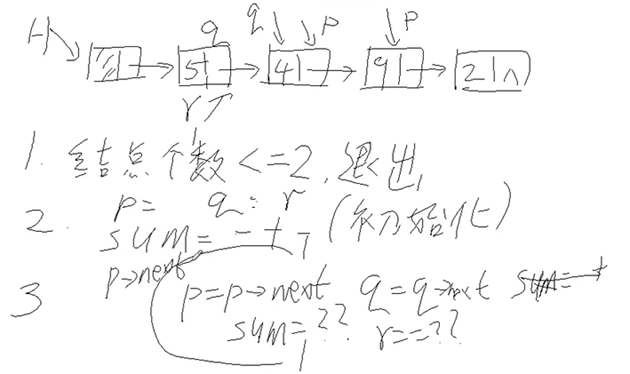 q q p p
H 5 4 9 2 ∧
r
1. 结点个数<=2,退出
2. p= q= r
sum= - + , (初始化)
p→next
3 p=p→next q=q→next sum= +
sum=?? r==??